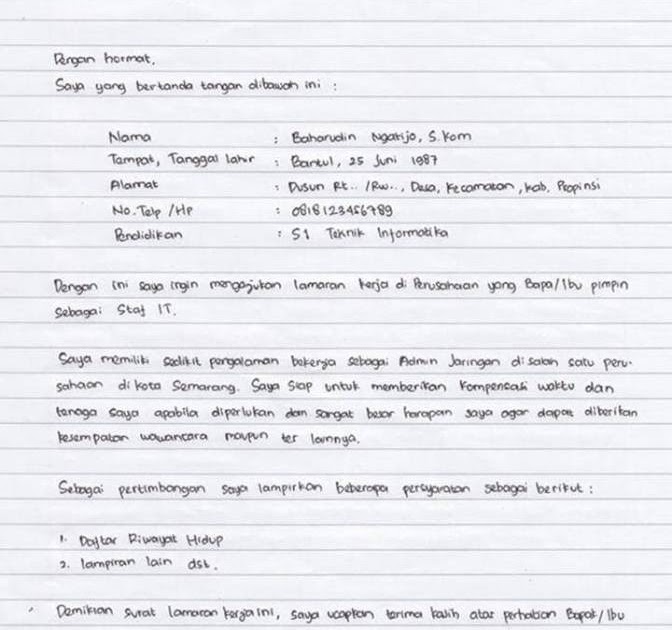 Dengan hormat,
Saya yang bertanda tangan dibawah ini :
Nama : Baharudin Ngatijo, S.Kom
Tempat, Tanggal lahir : Bantul, 25 Juni 1987
Alamat : Dusun Rt.. /Rw.., Desa, Kecamatan, Kab, Propinsi
No. Telp /Hp : 0818123456789
Pendidikan : S1 Teknik Informatika
Dengan ini saya ingin mengajukan lamaran kerja di Perusahaan yang Bapa/Ibu pimpin
sebagai Staf IT.
Saya memiliki sedikit pengalaman bekerja sebagai Admin Jaringan di salah satu peru-
sahaan di kota Semarang. Saya siap untuk memberikan kompensasi waktu dan
tenaga saya apabila diperlukan dan sangat besar harapan saya agar dapat diberikan
kesempatan wawancara maupun tes lainnya.
Sebagai pertimbangan saya lampirkan beberapa persyaratan sebagai berikut :
1. Daftar Riwayat Hidup
2. lampiran lain dst.
Demikian surat lamaran kerja ini, saya ucapkan terima kasih atas perhatian Bapak/Ibu